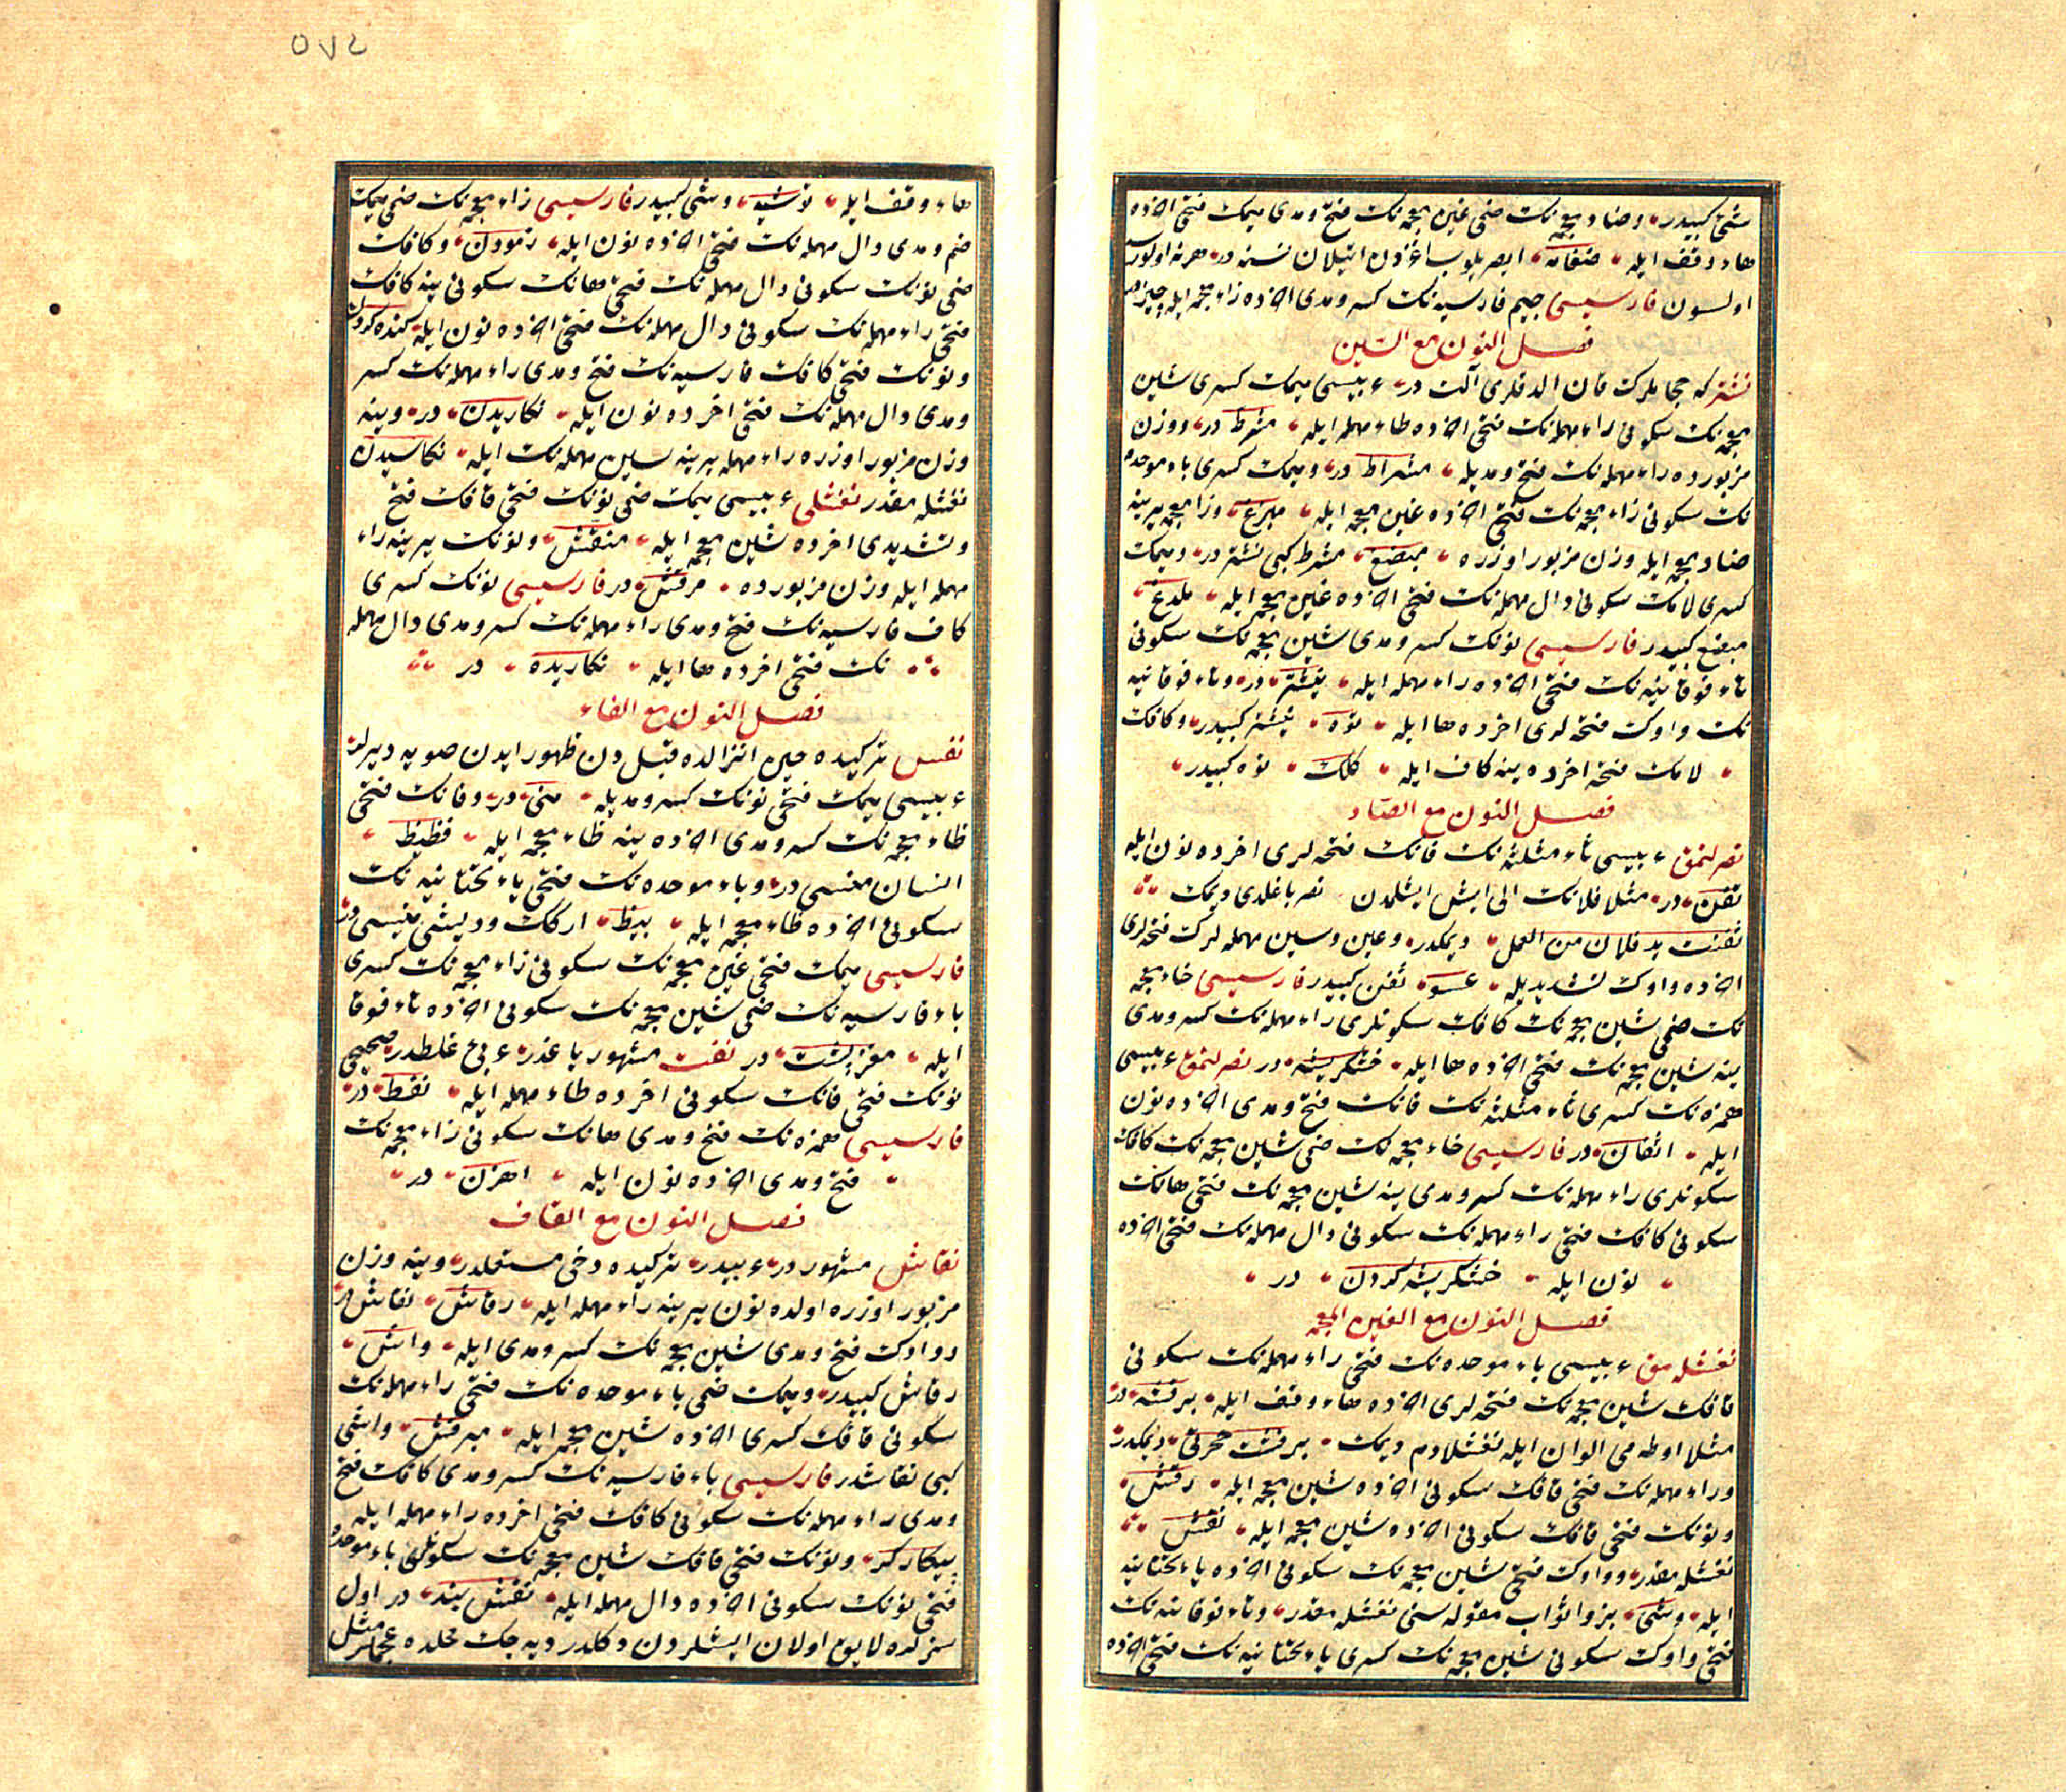 شئ كبيدر وضاد معجمه نك ضمى غين معجمه نك فتح ومدى ميمك فتحى اخرده
هاء وقف ايله ضغامه ايصريلوب اغزدن اتيلان نسنه در هر نه اولورسه
اولسون فارسيسى جيم فارسيه نك كسر ومدى اخرده زاء معجمه ايله چيز در
فصل النون مع الشين
نشتر كه حجاملرك قان الدقلرى آلت در عربيسى ميمك كسرى شين
معجمه نك سكونى راء مهمله نك فتحى اخرده طاء مهمله ايله مشرط در ووزن
مزبورده راء مهمله نك فتح ومديله مشراط در وميمك كسرى باء موحده
نك سكونى زاء معجمه نك فتحى اخرده غين معجمه ايله مبزغ وزا معجمه يرينه
ضاد معجمه ايله وزن مزبور اوزره مبضع مشرط كبى نشتر در وميمك
كسرى لامك سكونى دال مهمله نك فتحى اخرده غين معجمه ايله ملدغ
مبضع كبيدر فارسيسى نونك كسر ومدى شين معجمه نك سكونى
تاء فوقانيه نك فتحى اخرده راء مهمله ايله نيشتر در وتاء فوقانيه
نك واوك فتحه لرى اخرده ها ايله توه نيشتر كبيدر وكافك
لامك فتحه اخرده ينه كاف ايله كلك توه كبيدر
فصل النون مع الصاد
نصرلنمق عربيسى ثاء مثلثه نك فانك فتحه لرى اخرده نون ايله
ثفن در مثلا فلانك الى ايش ايشلمدن نصر باغلدى ديمك
ثفنت يد فلان من العمل ديمكدر وعين وسين مهمله لرك فتحه لرى
اخرده واوك تشديديله عسو ثفن كبيدر فارسيسى خاء معجمه
نك ضمى شين معجمه نك كافك سكونلرى راء مهمله نك كسر ومدى
ينه شين معجمه نك فتحى اخرده ها ايله خشكريشه در نصرلنمق عربيسى
همزه نك كسرى ثاء مثلثه نك فانك فتح ومدى اخرده نون
ايله اثفان در فارسيسى خاء معجمه نك ضمى شين معجمه نك كافك
سكونلرى راء مهمله نك كسر ومدى ينه شين معجمه نك فتحى هانك
سكونى كافك فتحى راء مهمله نك سكونى دال مهمله نك فتحى اخرده
نون ايله خشكريشه كردن در
فصل النون مع الغين المعجمه
نغشله مق عربيسى باء موحده نك فتحى راء مهمله نك سكونى
قافك شين معجمه نك فتحه لرى اخرده هاء وقف ايله برقشه در
مثلا اوطه مى الوان ايله نغشلادم ديمك برقشت حجرتى ديمكدر
وراء مهمله نك فتحى قافك سكونى اخرده شين معجمه ايله رقش
ونونك فتحى قافك سكونى اخرده شين معجمه ايله نقش
نغشله مقدر وواوك فتحى شين معجمه نك سكونى اخرده ياء تحتانيه
ايله وشى بز واثواب مقوله سنى نغشله مقدر وتاء فوقانيه نك
فتحى واوك سكونى شين معجمه نك كسرى ياء تحتانيه نك فتحى اخرده
٥٧٤
هاء وقف ايله توشيه وشى كبيدر فارسيسى زاء معجمه نك ضمى ميمك
ضم ومدى دال مهمله نك فتحى اخرده نون ايله زمودن وكافك
ضمى نونك سكونى دال مهمله نك فتحى هانك سكونى ينه كافك
فتحى راء مهمله نك سكونى دال مهمله نك فتحى اخرده نون ايله كنده كردن
ونونك فتحى كافك فارسيه نك فتح ومدى راء مهمله نك كسر
ومدى دال مهمله نك فتحى اخرده نون ايله نكاريدن در وينه
وزن مزبور اوزره راء مهمله يرينه سين مهمله نك ايله نكاسيدن
نغشله مقدر نغشلى عربيسى ميمك ضمى نونك فتحى قافك فتح
وتشديدى اخرده شين معجمه ايله منقش ونونك يرينه راء
مهمله ايله وزن مزبورده مرقش در فارسيسى نونك كسرى
كاف فارسيه نك فتح ومدى راء مهمله نك كسر ومدى دال مهمله
نك فتحى اخرده ها ايله نكاريده در
فصل النون مع الفاء
نفس تركيده حين انزالده قبل دن ظهور ايدن صويه ديرلر
عربيسى ميمك فتحى نونك كسر ومديله منى در وفانك فتحى
ظاء معجمه نك كسر ومدى اخرده ينه ظاء معجمه ايله فظيظ
انسان منيسى در وباء موحده نك فتحى ياء تحتانيه نك
سكونى اخرده ظاء معجمه ايله بيظ اركك وديشى منيسى در
فارسيسى ميمك فتحى غين معجمه نك سكونى زاء معجمه نك كسرى
باء فارسيه نك ضمى شين معجمه نك سكونى اخرده تاء فوقا
ايله مغز پشت در نفت مشهور ياغدر عربى غلطدر صحيحى
نونك فتحى فانك سكونى اخرده طاء مهمله ايله نفط در
فارسيسى همزه نك فتح ومدى هانك سكونى زاء معجمه نك
فتح ومدى اخرده نون ايله اهزن در
فصل النون مع القاف
نقاش مشهور در عربيدر تركيده دخى مستعملدر وينه وزن
مزبور اوزره اولده نون يرينه راء مهمله ايله رقاش نقاش در
وواوك فتح ومدى شين معجمه نك كسر ومدى ايله واشى
رقاش كبيدر وميمك ضمى باء موحده نك فتحى راء مهمله نك
سكونى قافك كسرى اخرده شين معجمه ايله مبرقش واشى
كبى نقاشدر فارسيسى باء فارسيه نك كسر ومدى كافك فتح
ومدى راء مهمله نك سكونى كافك فتحى اخرده راء مهمله ايله
پيكاركر ونونك فتحى قافك شين معجمه نك سكونلرى باء موحده
فتحى نونك سكونى اخرده دال مهمله ايله نقش بند در اول
سزلره لايق اولان ايشلردن دكلدر ديه جك محلده عجملر مثل